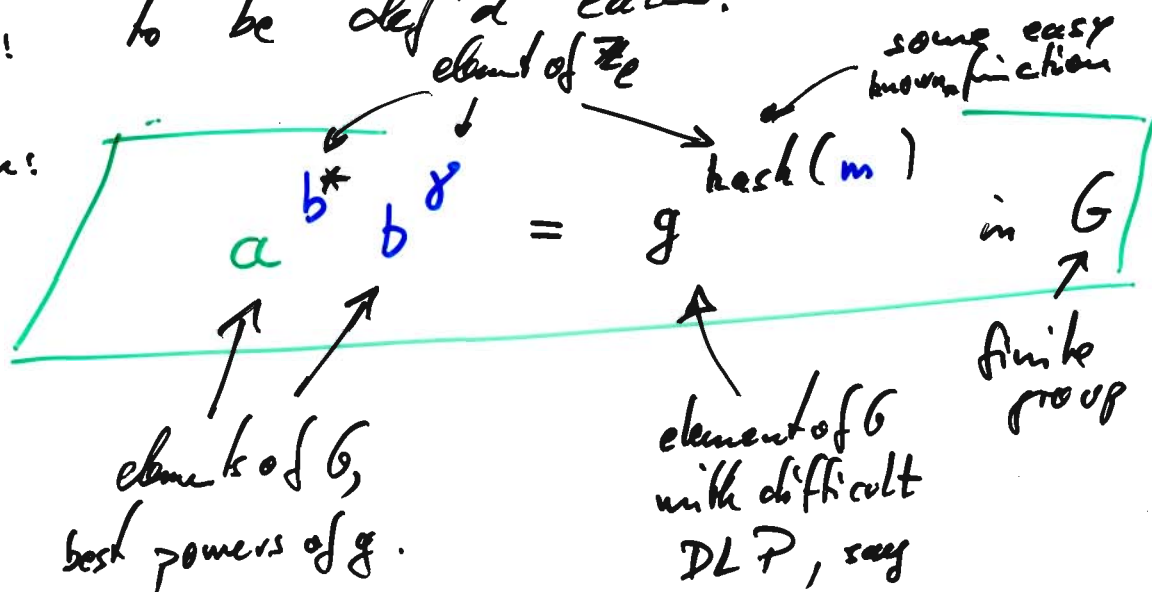 to be def'd
element of ℤ_ℓ
some easy
known function
a^{b^*} b^γ = g^{hash(m)} in G
finite
group
elements of G,
best powers of g.
element of G
with difficult
DLP, say